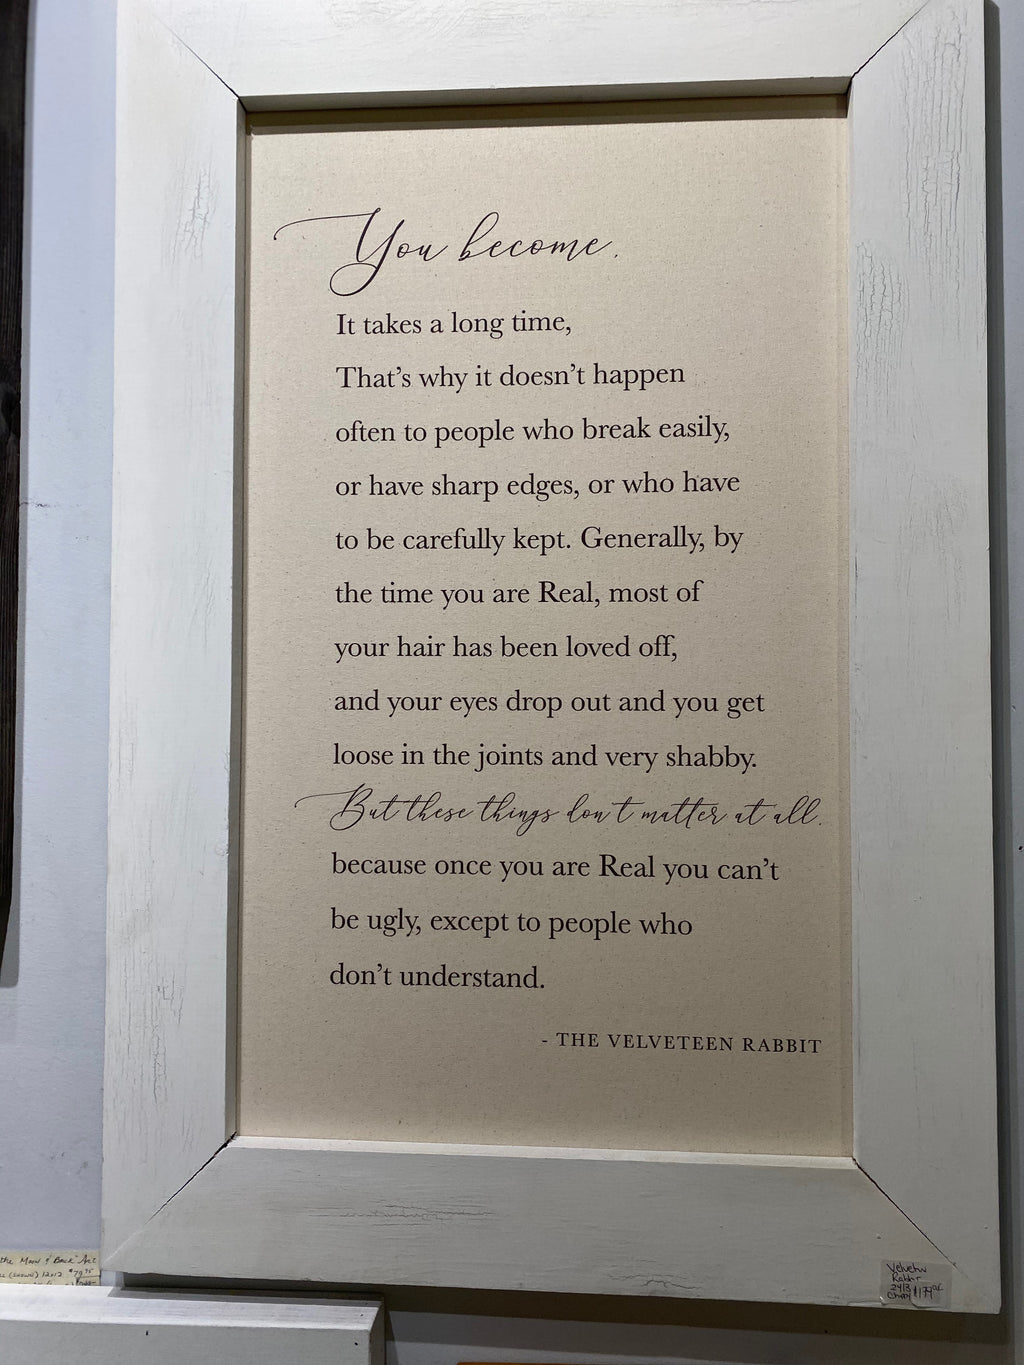 You become.
It takes a long time,
That's why it doesn't happen
often to people who break easily,
or have sharp edges, or who have
to be carefully kept. Generally, by
the time you are Real, most of
your hair has been loved off,
and your eyes drop out and you get
loose in the joints and very shabby.
But these things don't matter at all.
because once you are Real you can't
be ugly, except to people who
don't understand.
- THE VELVETEEN RABBIT
the Moon & Back Art
(shown) 12x12
Rabbit